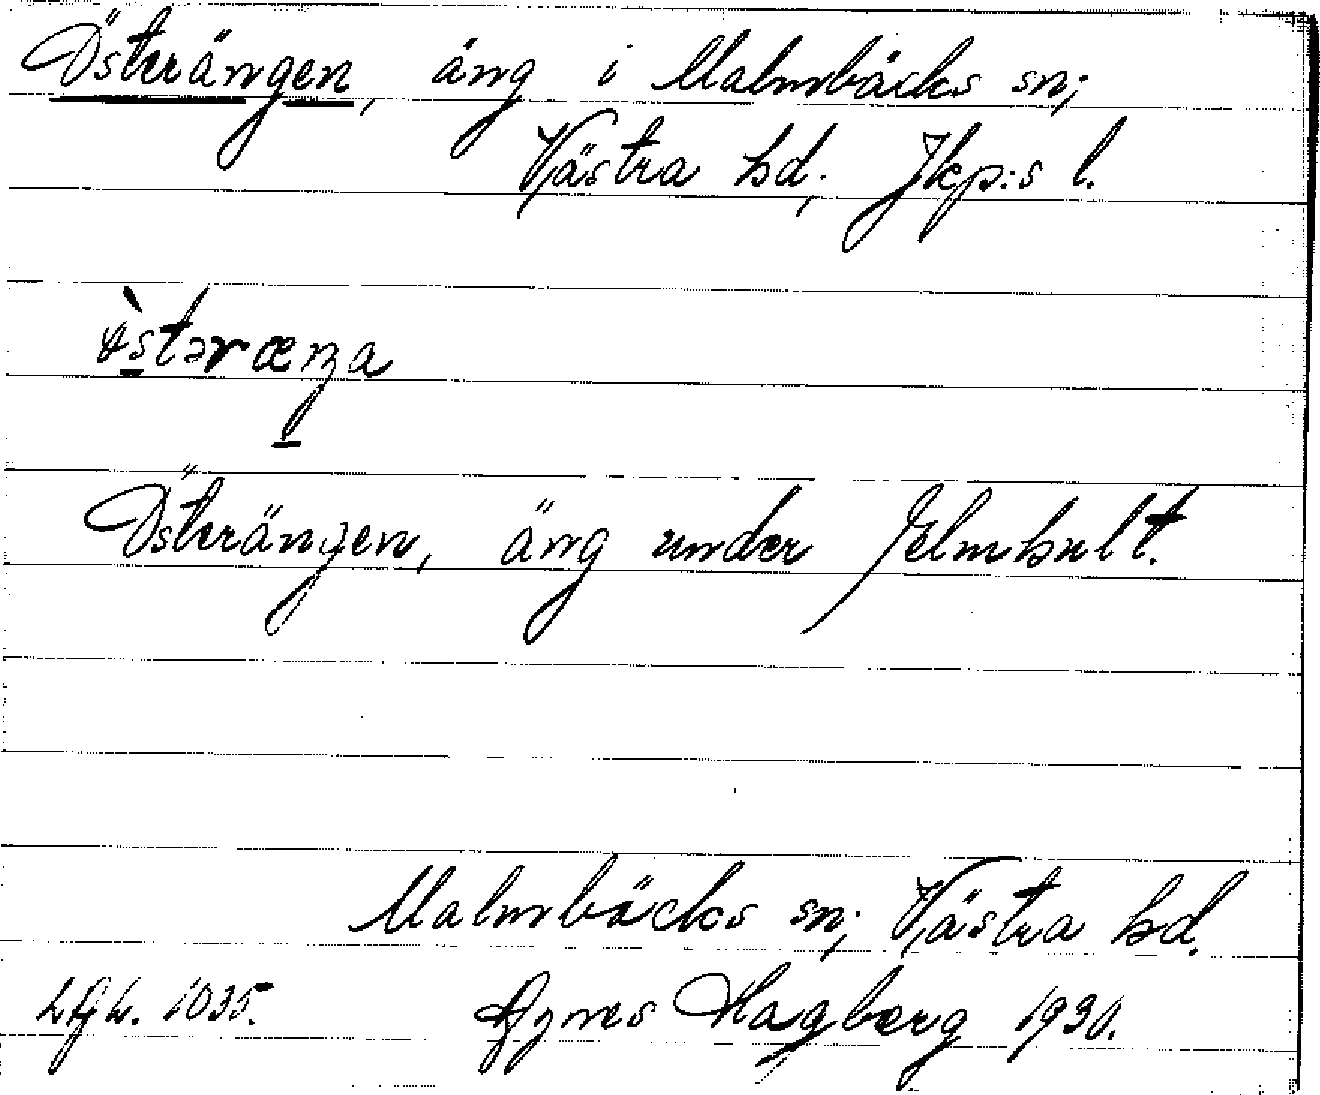 Österängen, äng i Malmbäcks sn;
Västra hd; Jkp:s l.
Österängen, äng under Elmhult.
Malmbäcks sn; Västra hd.
1035. Agnes Hagberg 1930.